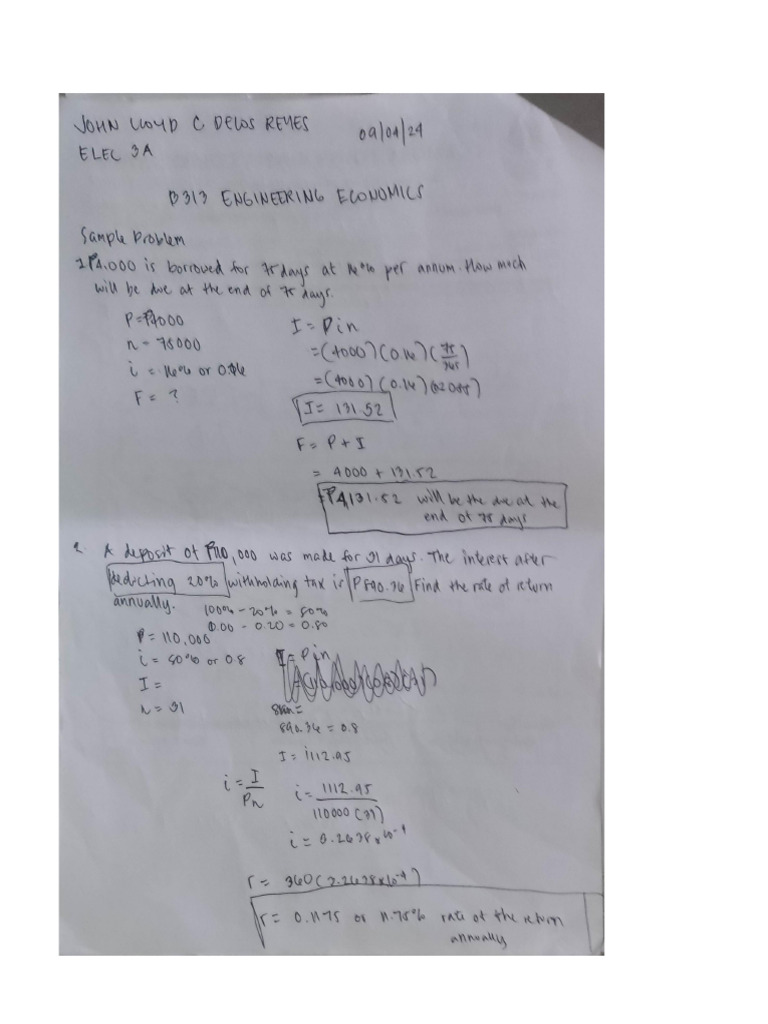 JOHN LLOYD C DELOS REYES 09/04/24
ELEC 3A
B313 ENGINEERING ECONOMICS
Sample Problem
1. ₱4,000 is borrowed for 75 days at 16% per annum. How much
will be due at the end of 75 days.
P = ₱4000
n = 75000
i = 16% or 0.16
F = ?
I = Pin
= (4000)(0.16)(75/365)
= (4000)(0.16)
I = 131.52
F = P + I
= 4000 + 131.52
= ₱4,131.52 will be the due at the
end of 75 days
2. A deposit of ₱110,000 was made for 31 days. The interest after
deducting 20% withholding tax is ₱890.36 Find the rate of return
annually.
100% - 20% = 80%
1.00 - 0.20 = 0.80
P = 110,000
i = 80% or 0.8
I =
n = 31
I = Pin
890.36 = 0.8
I = 1112.95
i = I/Pn
i = 1112.95 / 110000(31)
r = 0.1175 or 11.75% rate of the return
annually